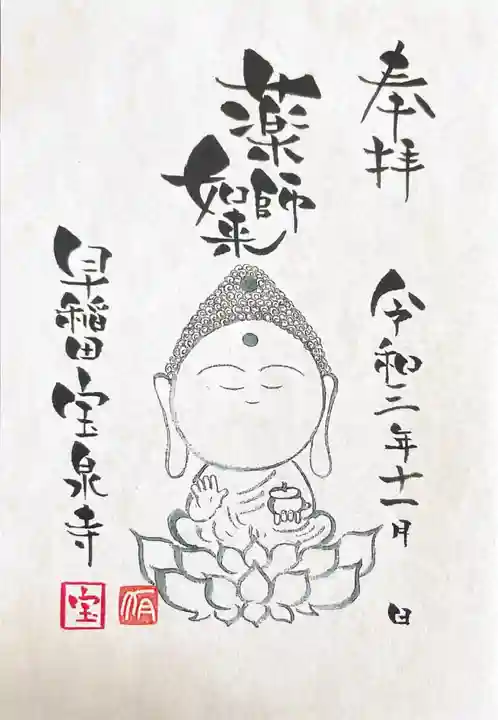 奉拝
令和二年十一月 日
薬師
如来
早稲田宝泉寺
宝